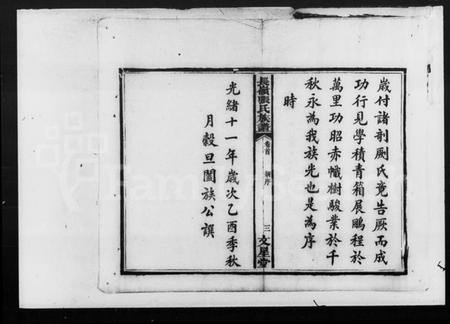 歲付諸剞劂氏竟告厥而成
功行見學積青箱展鵬程於
萬里功昭赤幟樹駿業於千
秋永為我族光也是為序
時
長嶺張氏族譜
卷首
三
文星堂
光緒十一年歲次乙酉季秋
月穀旦闔族公譔